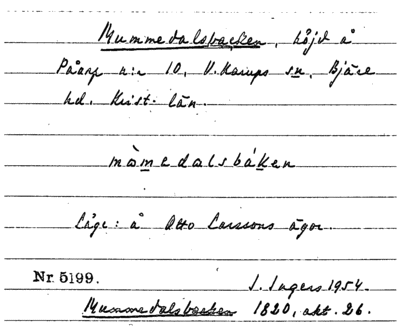 Mummedalsbacken, höjd å
Påarp n:r 10, V. Karups sn, Bjäre
hd. Krist. län.
mòmedalsbáken
Läge: å Otto Larssons ägor.
Nr. 5199.
I. Ingers 1954.
Mummedalsbacken 1820, akt. 26.